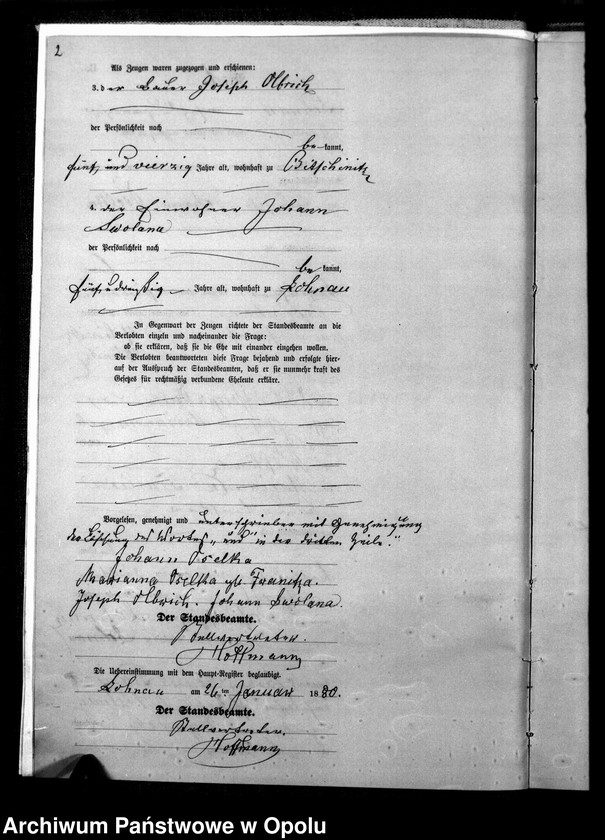 2
Als Zeugen waren zugezogen und erschienen:
3. der Bauer Joseph Olbrich
der Persönlichkeit nach
be kannt,
fünf und vierzig Jahre alt, wohnhaft zu Bitschinitz
4. der Einwohner Johann
Swolana
der Persönlichkeit nach
be kannt,
Jahre alt, wohnhaft zu Lohnau
In Gegenwart der Zeugen richtete der Standesbeamte an die
Verlobten einzeln und nacheinander die Frage:
ob sie erklären, daß sie die Ehe mit einander eingehen wollen.
Die Verlobten beantworteten diese Frage bejahend und erfolgte hier-
auf der Ausspruch der Standesbeamten, daß er sie nunmehr kraft des
Gesetzes für rechtmäßig verbundene Eheleute erkläre.
Vorgelesen, genehmigt und unterschrieben mit Genehmigung
der Löschung des Wortes „und“ in der dritten Zeile.
Johann
Marianna geb.
Joseph Olbrich. Johann Swolana.
Der Standesbeamte.
Stellvertreter.
Hoffmann
Die Uebereinstimmung mit dem Haupt-Register beglaubigt.
Lohnau am 26ten Januar 1880.
Der Standesbeamte.
Stellvertreter.
Hoffmann
Archiwum Państwowe w Opolu